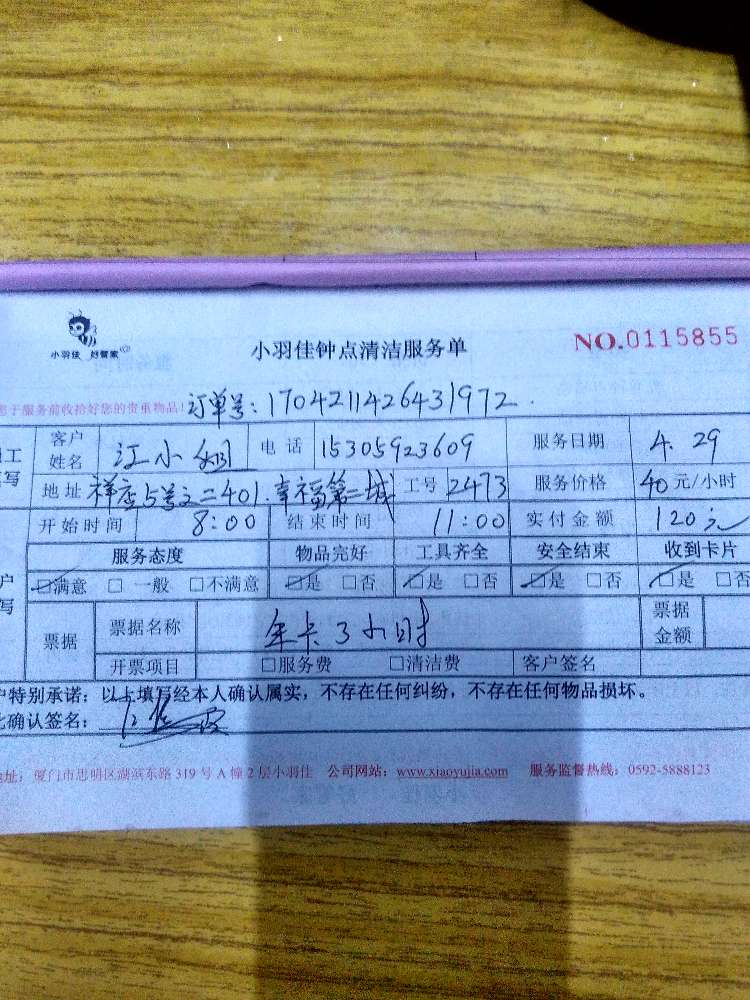 小羽佳 好管家
小羽佳钟点清洁服务单
NO.0115855
于服务前收拾好您的贵重物品! 订单号: 1704211426431972
工 客户姓名 江小 电话 15305923609 服务日期 4.29
写 地址 祥店5号之二401.幸福第二城 工号 2473 服务价格 40元/小时
开始时间 8:00 结束时间 11:00 实付金额 120元
服务态度 物品完好 工具齐全 安全结束 收到卡片
户 ☑满意 □一般 □不满意 ☑是 □否 ☑是 □否 ☑是 □否 ☑是 □否
写 票据 票据名称 年卡3小时 票据金额
开票项目 □服务费 □清洁费 客户签名
户特别承诺: 以上填写经本人确认属实, 不存在任何纠纷, 不存在任何物品损坏。
确认签名:
址: 厦门市思明区湖滨东路319号A幢2层小羽佳 公司网站: www.xiaoyujia.com 服务监督热线: 0592-5888123